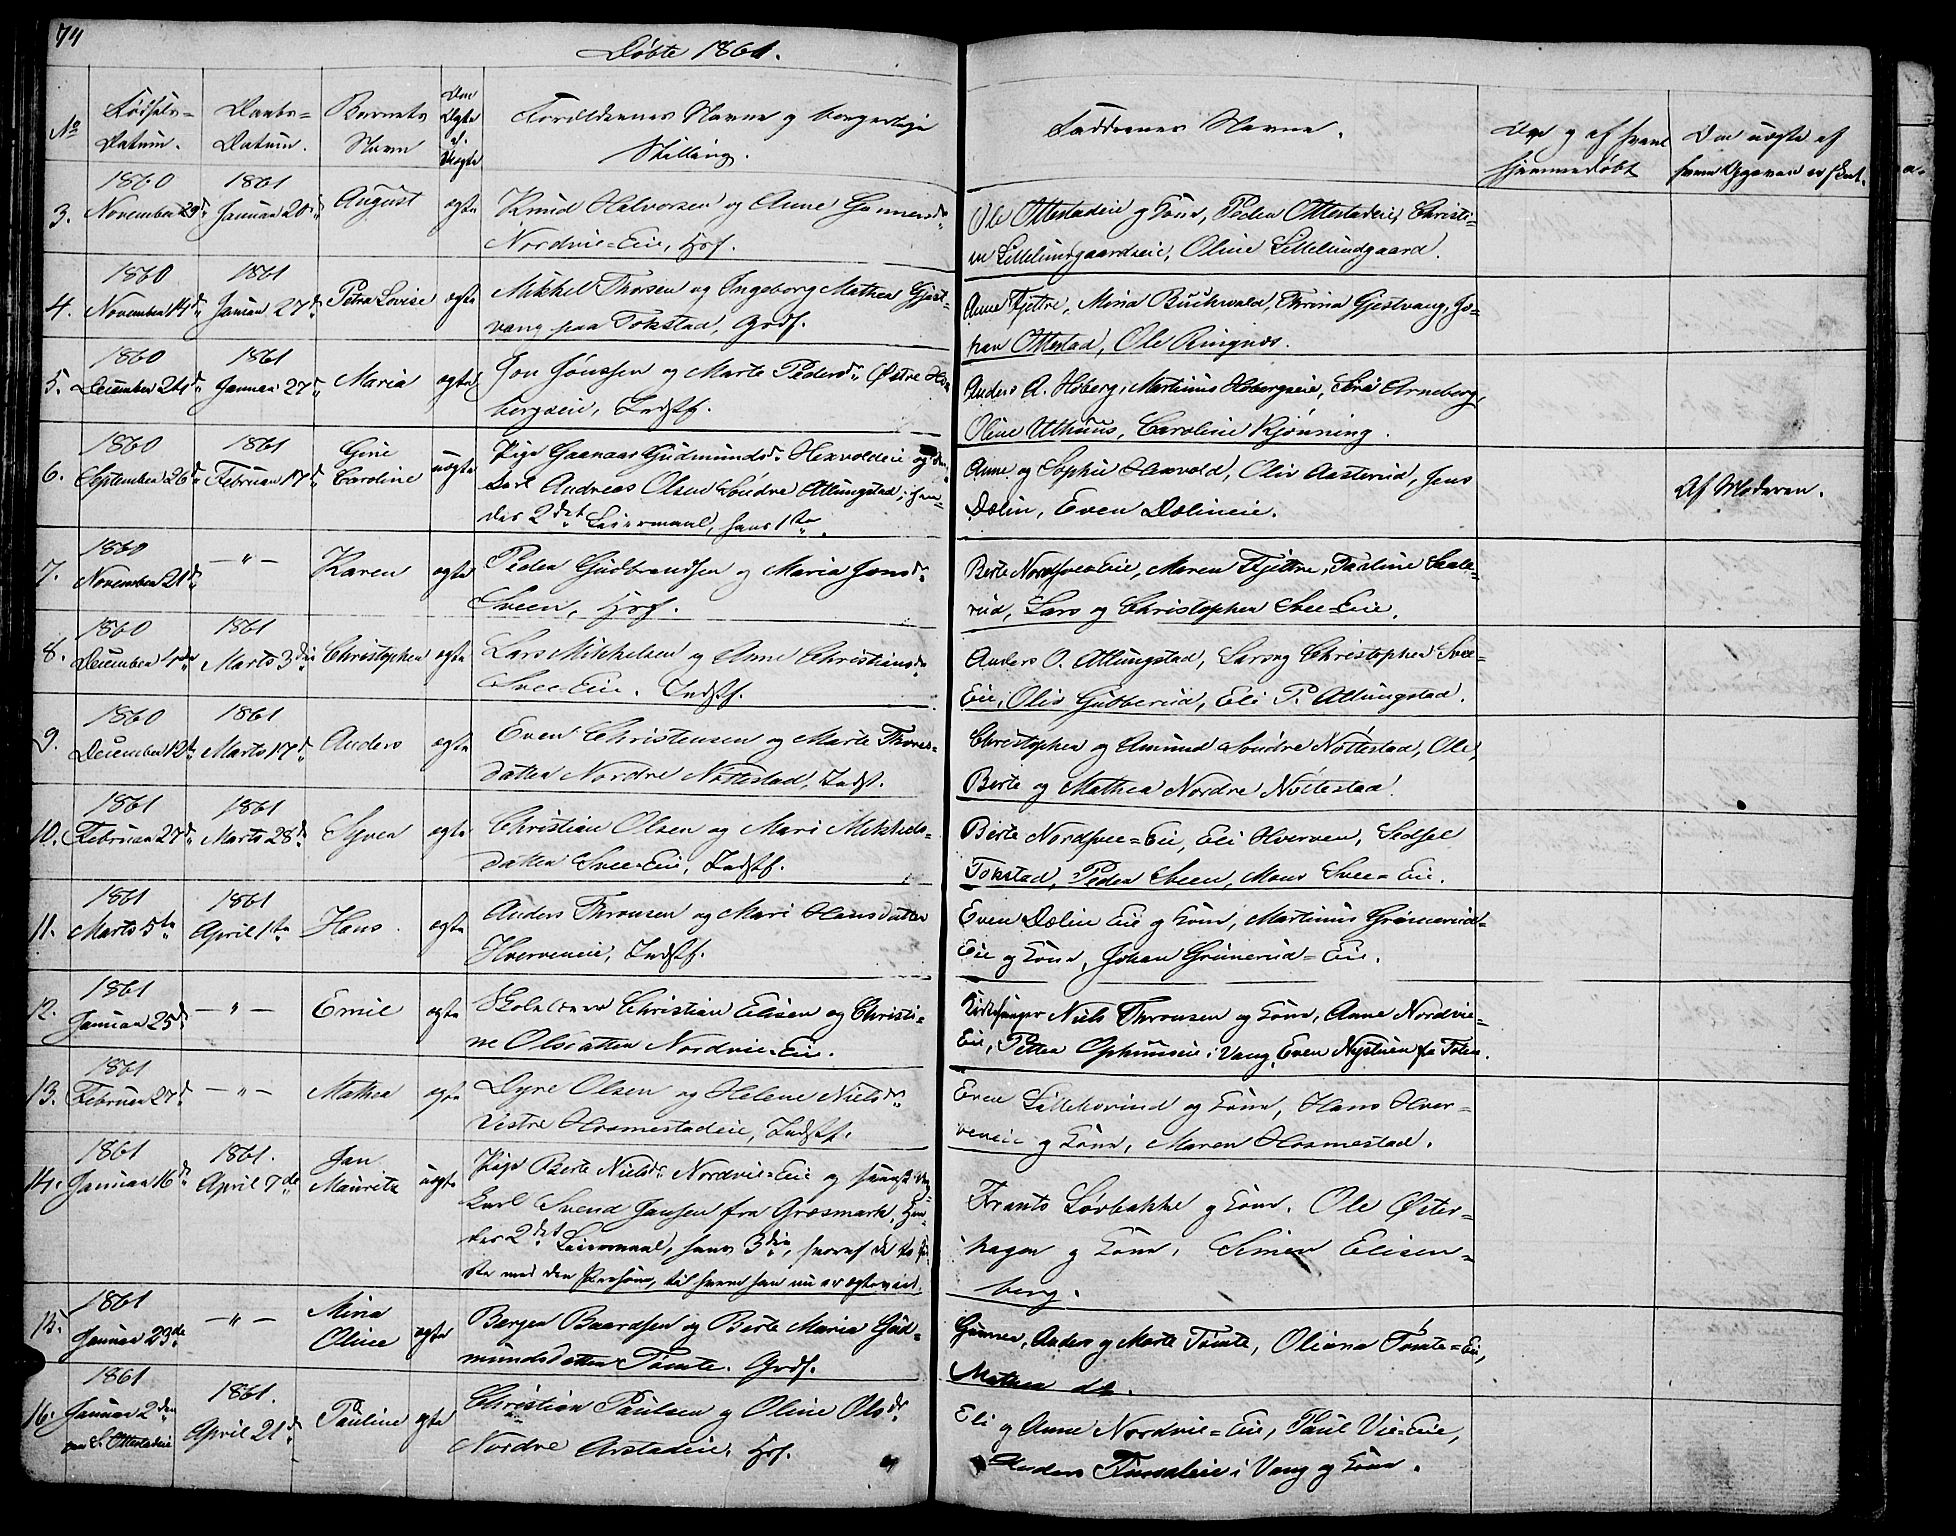 74
Døbte 1861.
No
Fødsels-
Datum.
Daabs-
Datum.
Barnets
Navn
Om
Ægte
el.
Uægte
Forældrenes Navne og borgerlige
Stilling.
Faddernes Navne.
Om og af hvem
hjemmedøbt
Om uægte af
hvem Opgaven er skeet.
3.
1860
November 29d
1861
Januar 20d
August
ægte
Knud Halvorsen og Anne Gunnersdr
Nordvie-Eie, Hsf.
Ole Ottestadeie og Kone, Peder Ottestadeie, Christi-
ne Lillelundgaardseie, Oline Lillelundgaard.
4.
1860
November 14d
1861
Januar 27d
Petra Lovise
ægte
Mikkel Thorsen og Ingeborg Mathea Gjest-
vang paa Tokstad, Grdf.
Anne Fjetre, Mina Buchwald, Thrina Gjestvang, Jo-
han Ottestad, Ole Ringnæs.
5.
1860
December 24d
1861
Januar 27d
Maria
ægte
Jon Jonssen og Marte Pedersdr Østre Ho-
bergseie, Indstf.
Anders A. Hoberg, Martinus Hobergseie, Arneberg,
Oline Uthuus, Caroline Kjønning.
6.
1860
September 26d
1861
Februar 17d
Gine
Caroline
uægte
Pige Gudmundsdr Hexvoldeie og
Andreas Olsen Søndre Atlungstad, hen-
des 2det Leiermaal, hans 1ste.
Anne og Sophie Hexvold, Oliv Aasterud, Jens
Dælin, Even Dælineie.
Af Moderen.
7.
1860
November 21d
— " —
Karen
ægte
Peder Gudbrandsen og Maria Jensdr
Sveen, Hsf.
Berte Nordsvee-Eie, Maren Fjettre, Pauline Sæle-
rud, Lars og Christopher Svee-Eie.
8.
1860
December 4de
1861
Marts 3die
Christopher
ægte
Lars Mikkelsen og Anne Christiansdr
Svee-Eie. Indstf.
Anders O. Atlungstad, Lars og Christopher Svee-
Eie, Oliv Gubberud, Eli P. Atlungstad.
9.
1860
December 12te
1861
Marts 17d
Anders
ægte
Even Christensen og Marte Thores-
datter Nordre Nøttestad, Indst.
Christopher og Amund Søndre Nøttestad, Ole,
Berte og Mathea Nordre Nøttestad.
10.
1861
Februar 27d
1861
Marts 28d
Syver
ægte
Christian Olsen og Mari Mikkels-
datter Svee-Eie, Indstf.
Berte Nordsvee-Eie, Eli Hverven, Sedsel
Tokstad, Peder Sveen, Mons Svee-Eie.
11.
1861
Marts 5te
1861
April 1ste
Hans
ægte
Anders Thronsen og Mari Hansdatter
Hverveneie, Indstf.
Even Dælin Eie og Kone, Martinus Grimerud-
Eie og Kone, Johan Grimerud-Eie.
12.
1861
Januar 25d
— " —
Emil
ægte
Skolelærer Christian Elisen og Christi-
ne Olsdatter Nordvie-Eie.
Kirkesanger Niels Thronsen og Kone, Anne Nordvie-
Eie, Petter Ophuuseie i Vang, Even Nystuen fra Toten.
13.
1861
Februar 27d
— " —
Mathea
ægte
Dyre Olsen og Helene Nielsdr
Vestre Hosmestadeie, Indstf.
Even Lillehovind og Kone, Hans Hver-
veneie og Kone, Maren Hosmestad.
14.
1861
Januar 16d
1861.
April 7de
Jan
Mauritz
uægte
Pige Berte Nielsdr Nordvie-Eie og
Karl Svend Jansen fra Græsmark, Hen-
des 2det Leiermaal, hans 3die, hvoraf de to
med den Person, til hvem han nu er ægteviet.
Frants Løvbakke og Kone, Ole Øster-
hagen og Kone, Simen Elisen-
berg.
15.
1861
Januar 29de
— " —
Mina
Oline
ægte
Børger Baardsen og Berte Maria Gud-
mundsdatter Tomte. Grdf.
Gunner, Anders og Marte Tomte, Oliana Tomte-Eie,
Mathea do.
16.
1861
Januar 2den
Ottestadeie
1861.
April 21d
Pauline
ægte
Christian Paulsen og Oline Olsdr
Nordre Arstadeie, Hsf.
Eli og Anne Nordvie-Eie, Paul Vie-Eie,
Anders Furuseteie i Vang og Kone.